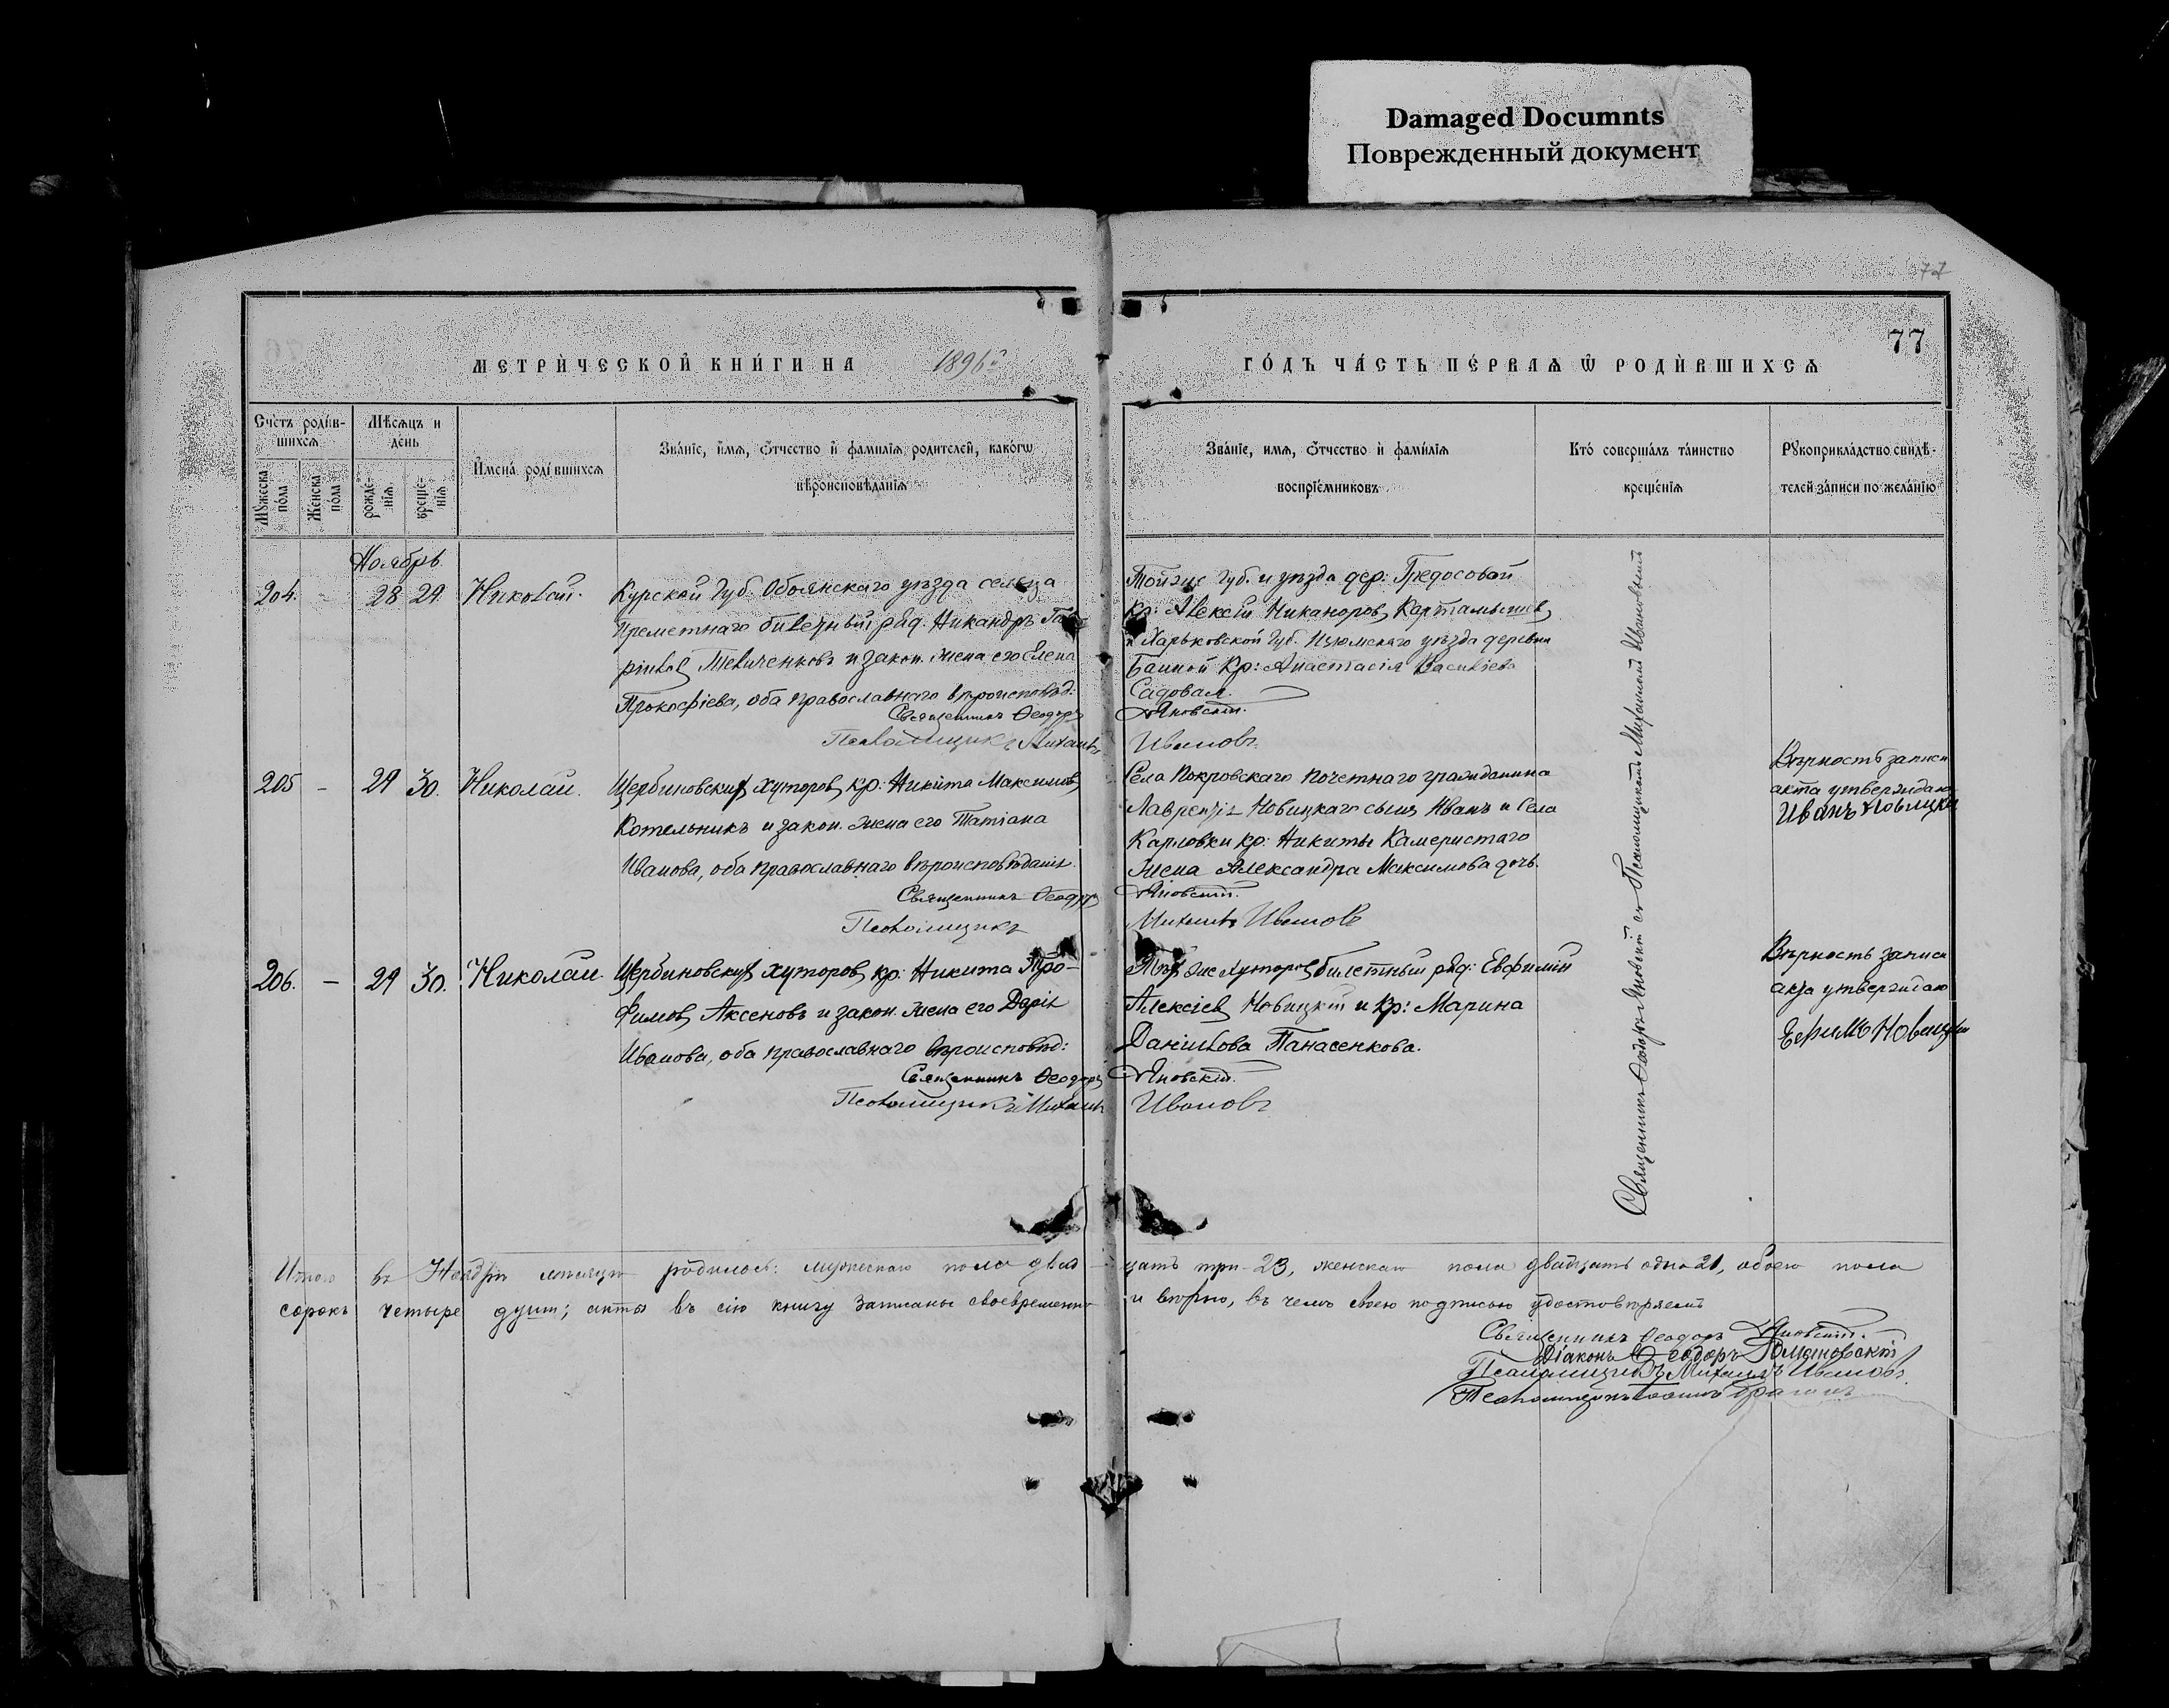 Damaged Documnts
Поврежденный документ
77
77
МЕТРИ́ЧЕСКОЙ КНИ́ГИ НА 1896й
ГО́ДЪ ЧА́СТЬ ПЕ́РВАѦ Ѿ РОДИ́ВШИХСѦ
Сче́тъ роди́в-
шихсѧ
Мꙋ́жеска по́ла
Же́нска по́ла
Мѣ́сѧцъ и
де́нь
рожде́-
нїѧ
креще́-
нїѧ
И҆мена̀ роди́вшихсѧ
Зва́нїе, и҆́мѧ, ѻ҆́тчество и҆ фами́лїѧ роди́телей, како́гѡ
вѣроисповѣ́данїѧ
Зва́нїе, и҆́мѧ, ѻ҆́тчество и҆ фами́лїѧ
воспрїе́мниковъ
Кто̀ соверша́лъ та́инство
креще́нїѧ
Рꙋкоприкла́дство свидѣ́-
телей за́писи по жела́нїю
Ноябрь
204. - 28 29 Николай.
Курской Губ. Обоянскаго уѣзда сельца
билетный ряд. Никандръ Гав-
ріиловъ и закон. жена его Елена
Прокофіева, оба православнаго вѣроисповѣд:
Священникъ Ѳеодоръ
Псаломщикъ Михаилъ
Той же Губ. и уѣзда дер:
кр: Алексій Никаноровъ Картамышевъ
и Харьковской Губ. Изюмскаго уѣзда деревни
Банной Кр: Анастасія Василіева
Садовая.
Яновскій.
Ивановъ.
205 - 29 30. Николай.
Щербиновскихъ хуторовъ кр: Никита Максимовъ
Котельникъ и закон. жена его Татіана
Иванова, оба православнаго вѣроисповѣданія.
Священникъ Ѳеодоръ
Псаломщикъ
Села Покровскаго почетнаго гражданина
Лаврентія Новицкаго сынъ Иванъ и Села
Карловки кр: Никиты Камеристаго
жена Александра Максимова дочь.
Яновскій.
Михаилъ Ивановъ
Вѣрность записи
акта утверждаю
Иванъ Новицкій
206. - 29 30. Николай.
Щербиновскихъ хуторовъ кр: Никита Тро-
фимовъ Аксеновъ и закон. жена его Дарія
Иванова, оба православнаго вѣроисповѣд:
Священникъ Ѳеодоръ
Псаломщикъ Михаилъ
Тѣхъ же хуторовъ билетный ряд: Евфимій
Алексіевъ Новицкій и Кр: Марина
Даніилова Панасенкова.
Яновскій.
Ивановъ
Вѣрность записи
акта утверждаю
Ефимъ Новицкій
Священникъ Ѳеодоръ Яновскій съ Псаломщикомъ Михаиломъ Ивановымъ
Итого въ Ноябрѣ мѣсяцѣ родилось: мужескаго пола двад-
цать три 23, женскаго пола двадцать одна 21, обоего пола
сорокъ четыре души; акты въ сію книгу записаны своевременно
и вѣрно, въ чемъ своею подписью удостовѣряемъ
Священникъ Ѳеодоръ Яновскій.
Діаконъ Ѳеодоръ Романовскій
Псаломщикъ Михаилъ Ивановъ.
Псаломщикъ